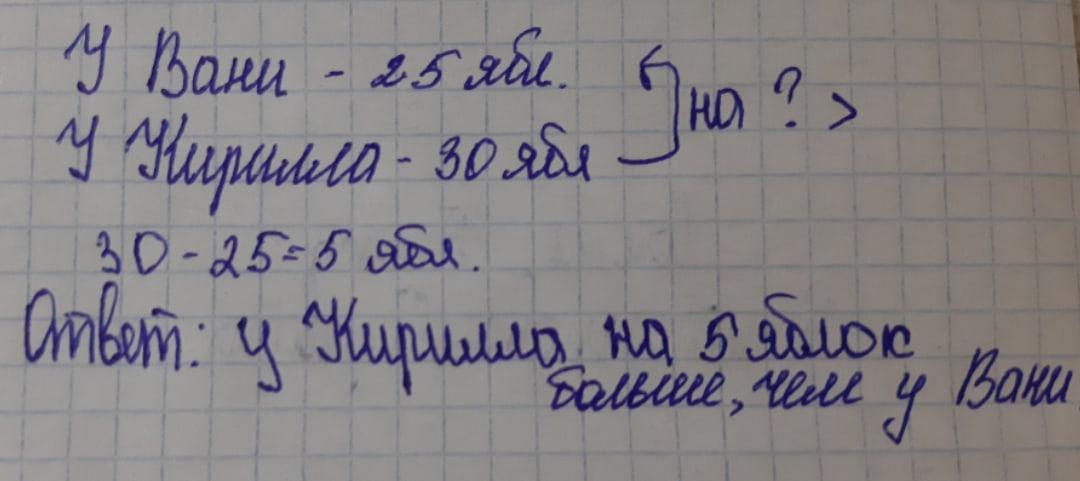 У Вани - 25 ябл.
У Кирилла - 30 ябл
на ? >
30 - 25 = 5 ябл.
Ответ: у Кирилла на 5 яблок
больше, чем у Вани